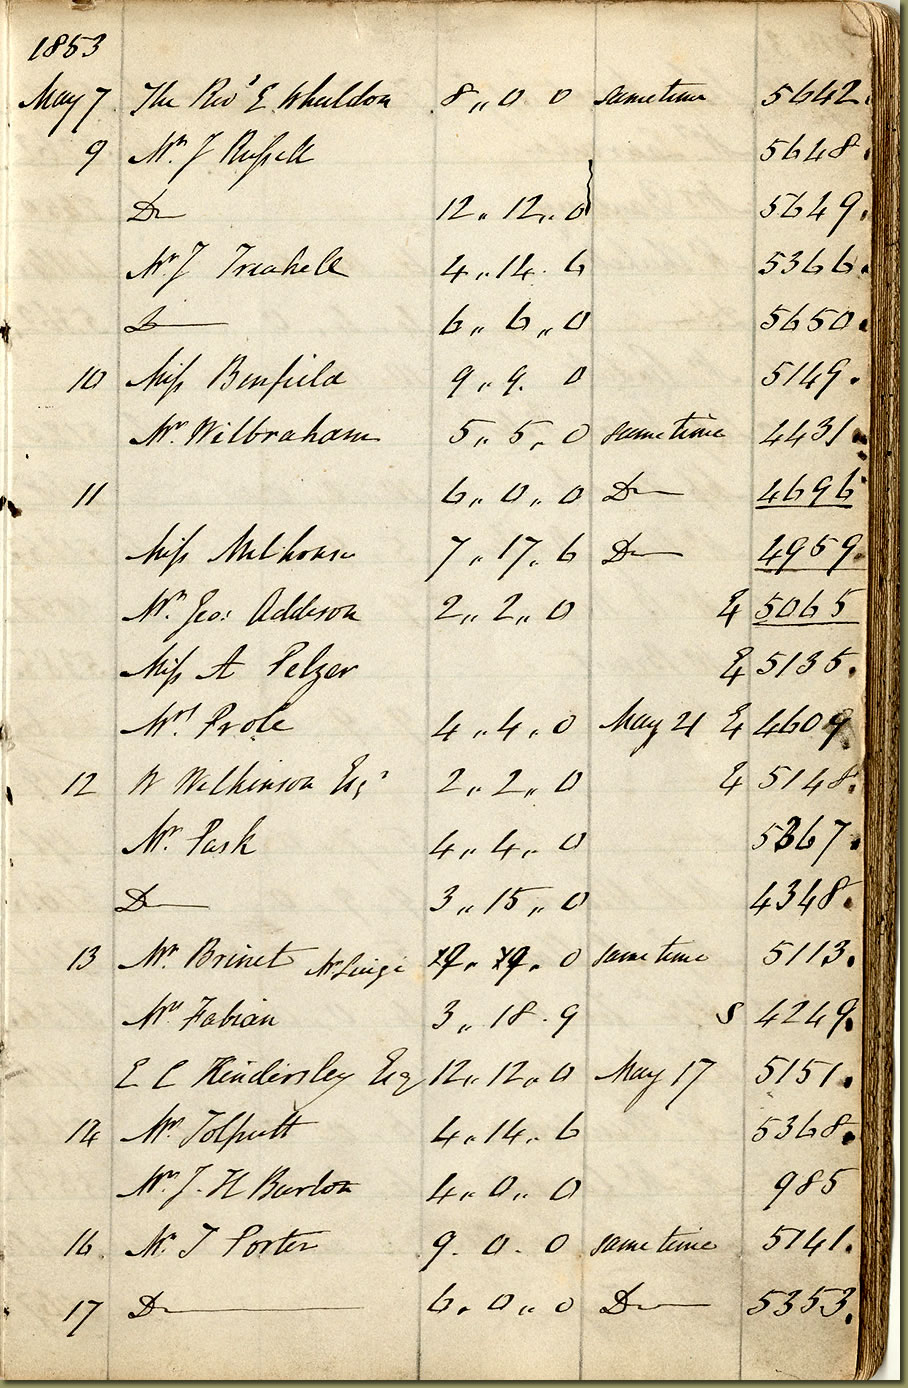 1853
May 7 The Revd E Wheildon 8,, 0 0 sometime 5642.
9 Mr J Russell 5648.
Do 12,, 12,, 0 5649.
Mr J 4,, 14. 6 5366.
Do 6,, 6,, 0 5650.
10 Miss Benfield 9,, 9. 0 5149.
Mr Wilbraham 5,, 5,, 0 sometime 4431
11 6,, 0,, 0 Do 4696
Miss Milhouse 7,, 17,, 6 Do 4959.
Mr Geo: Addison 2,, 2,, 0 5065
Miss A Pelzer 5135.
Mrs Prole 4,, 4,, 0 May 21 4609
12 W Wilkinson Esqr 2,, 2,, 0 5148.
Mr Pask 4,, 4,, 0 5367.
Do 3,, 15,, 0 4348.
13 Mr Brinet 0 sometime 5113.
Mr Fabian 3,, 18. 9 S 4249.
E C Hindersley Esq 12,, 12,, 0 May 17 5151.
14 Mr Tolputt 4,, 14,, 6 5368.
Mr J. H Burton 4,, 0,, 0 985
16. Mr T Porter 9. 0. 0 sometime 5141.
17 Do 6,, 0,, 0 Do 5353.